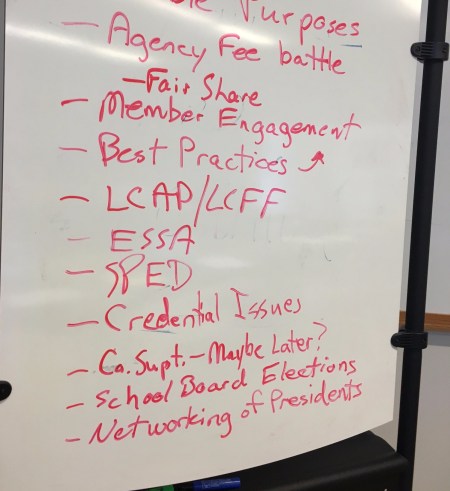 Purposes
- Agency Fee battle
- Fair Share
- Member Engagement
- Best Practices
- LCAP/LCFF
- ESSA
- SPED
- Credential Issues
- Co. Supt. - Maybe Later?
- School Board Elections
- Networking of Presidents